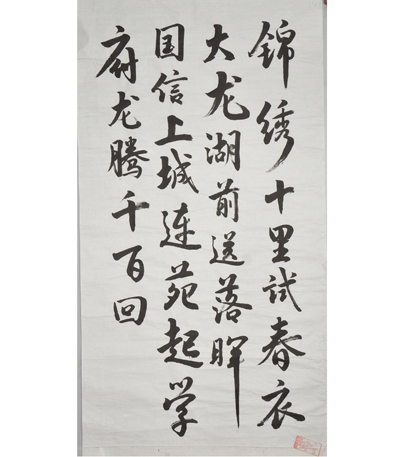 锦绣十里试春衣
大龙湖前送落晖
国信上城连苑起学
府龙腾千百回